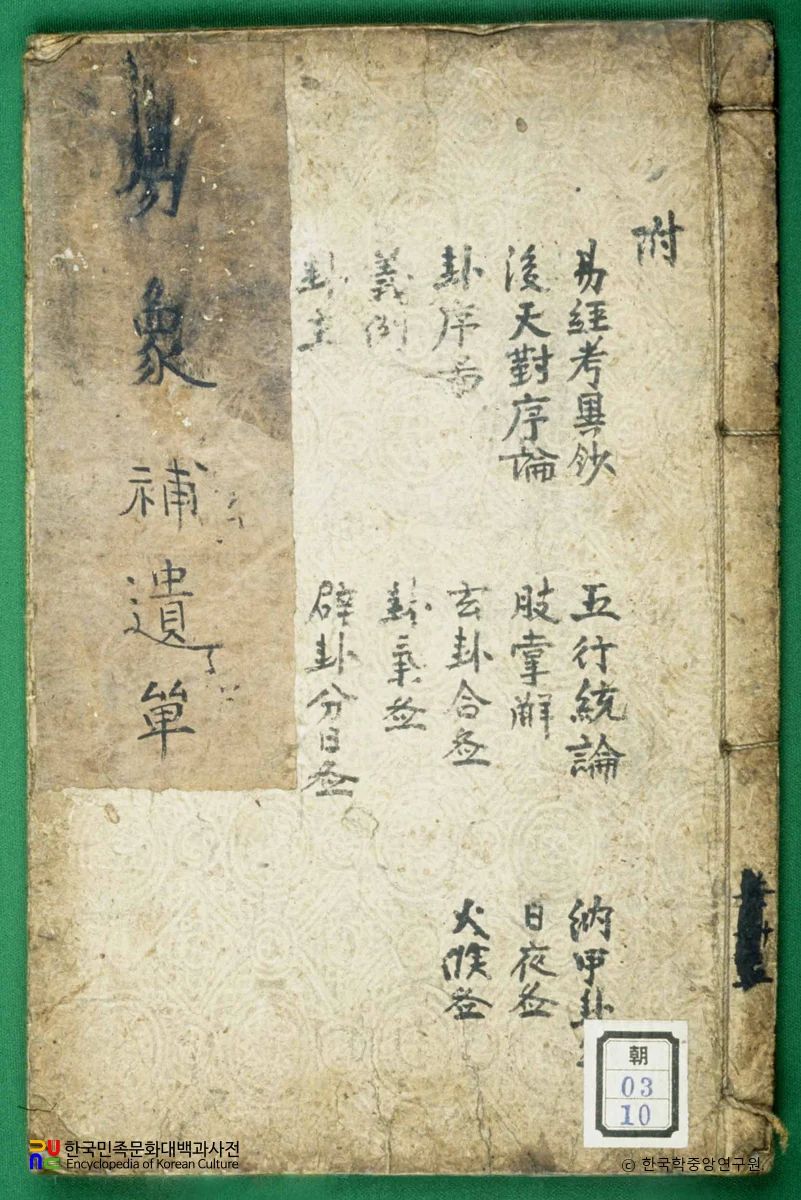 附
易經考異鈔
五行統論
納甲卦
後天對序論
肢掌解
日夜圖
卦序
玄卦合圖
火候圖
義例
卦氣圖
卦主
辟卦分日圖
易象補遺單
朝
03
10
한국민족문화대백과사전
Encyclopedia of Korean Culture
© 한국학중앙연구원